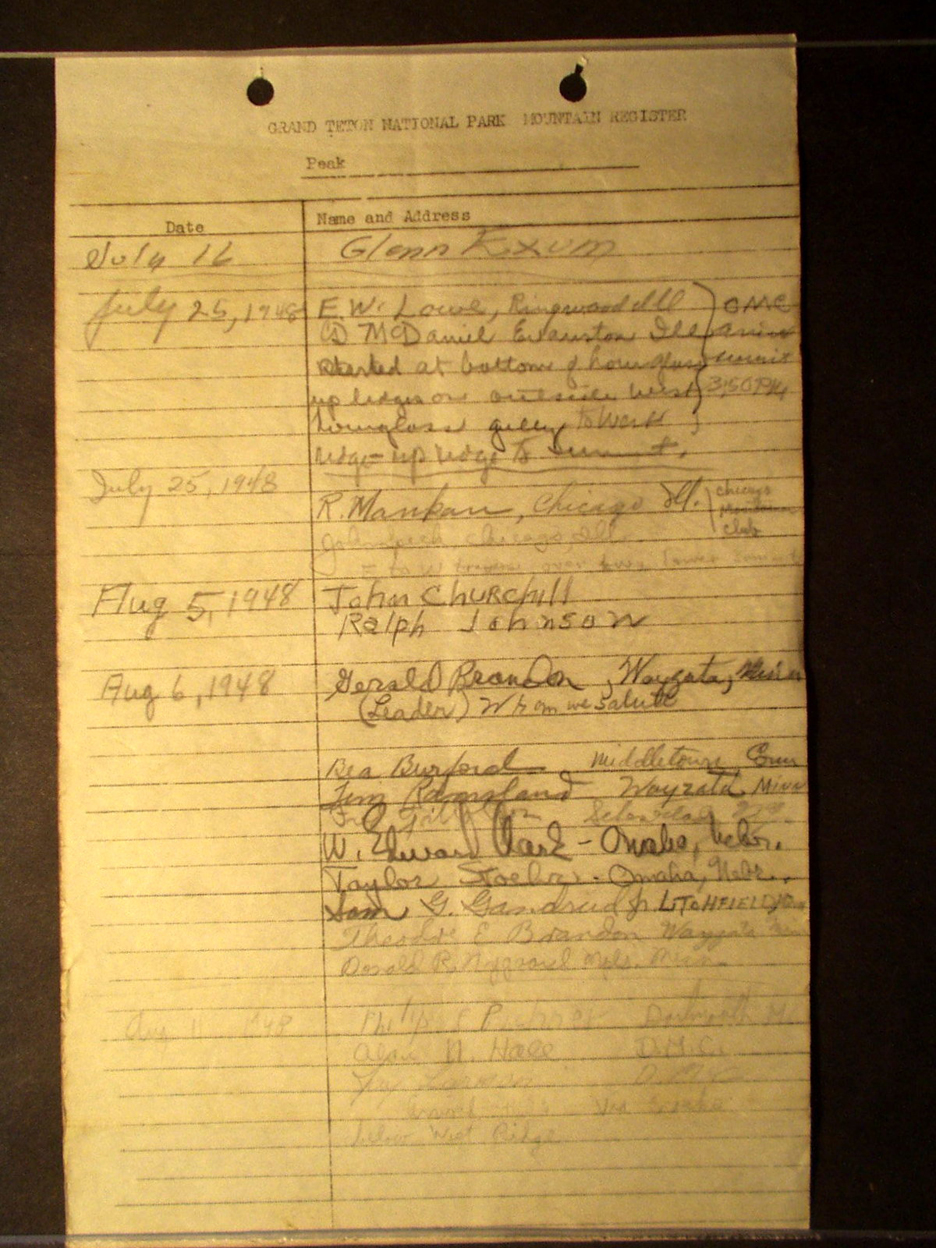 GRAND TETON NATIONAL PARK MOUNTAIN REGISTER
Peak
Date Name and Address
July 16 Glenn Exum
July 25, 1948 E. W. Lowe, Ringwood Ill
D McDaniel Evanston Ills
started at bottom of hourglass summit
up ledges on outside west 3:50 PM
hourglass gulley to West
ridge - up ridge to summit.
July 25, 1948
R. Mankau, Chicago Ill. Chicago
Mountain
Club
Chicago, Ill.
E to W traverse over lower summit
Aug 5, 1948 John Churchill
Ralph Johnson
Aug 6, 1948 Gerald Brandon, Wayzata, Minn
(Leader) Whom we salute
Bea Burford Middletown, Conn
Wayzata Minn
W. Edward Clark - Omaha, Nebr.
Taylor - Omaha, Nebr.
Sam G. Gandrud Jr LITCHFIELD,
Theodore E Brandon Wayzata Minn
Donald R. Nygaard Mpls. Minn.
Aug 11 1948 Philip Dartmouth M.
Alan N. Hall D.M.C.
D.M.C.
Via
below West Ridge